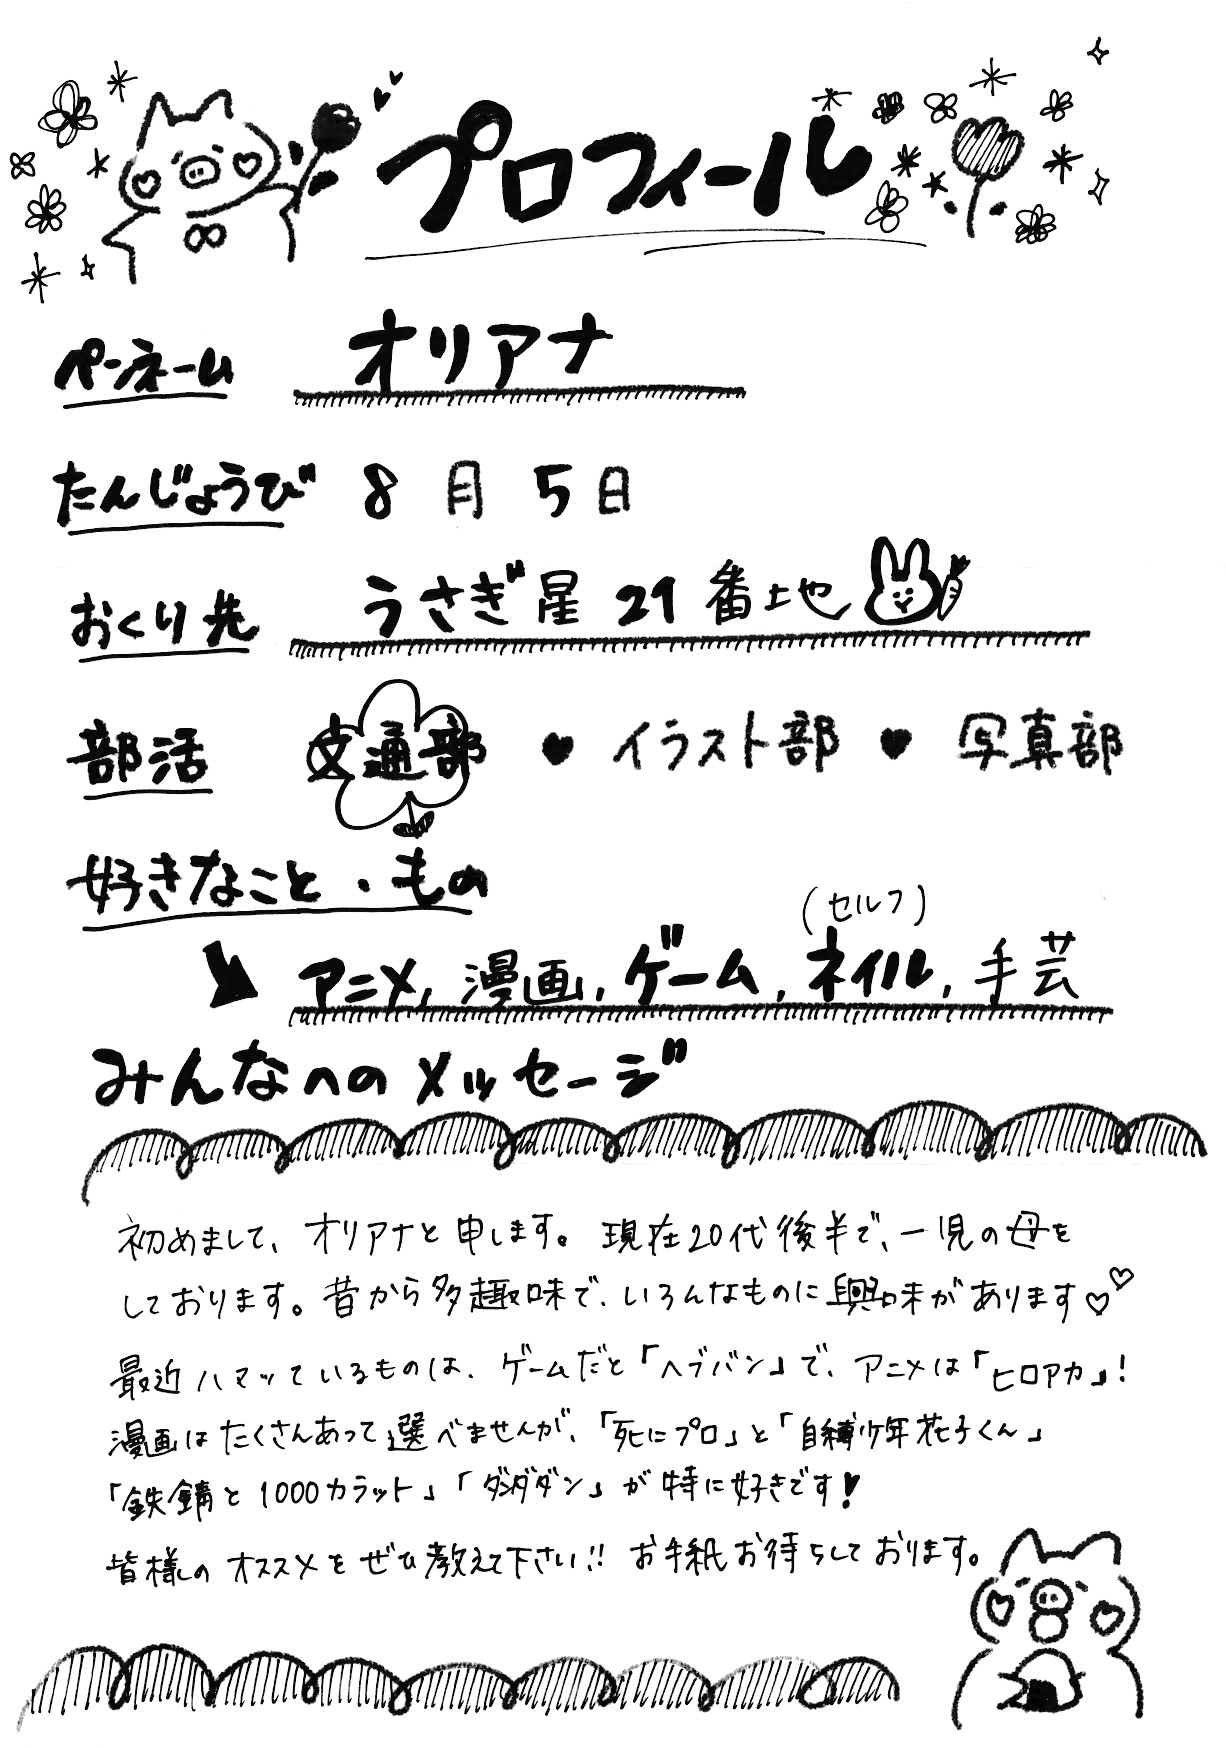 プロフィール
ペンネーム オリアナ
たんじょうび 8月5日
おくり先 うさぎ星 29番地
部活 文通部 ♥ イラスト部 ♥ 写真部
好きなこと・もの
(セルフ)
アニメ, 漫画, ゲーム, ネイル, 手芸
みんなへのメッセージ
初めまして、オリアナと申します。現在20代後半で、一児の母を
しております。昔から多趣味で、いろんなものに興味があります♡♡
最近ハマっているものは、ゲームだと「ヘブバン」で、アニメは「ヒロアカ」!
漫画はたくさんあって選べませんが、「死にプロ」と「自縛少年花子くん」
「鉄錆と1000カラット」「ダンダダン」が特に好きです!
皆様のオススメをぜひ教えて下さい!! お手紙お待ちしております。